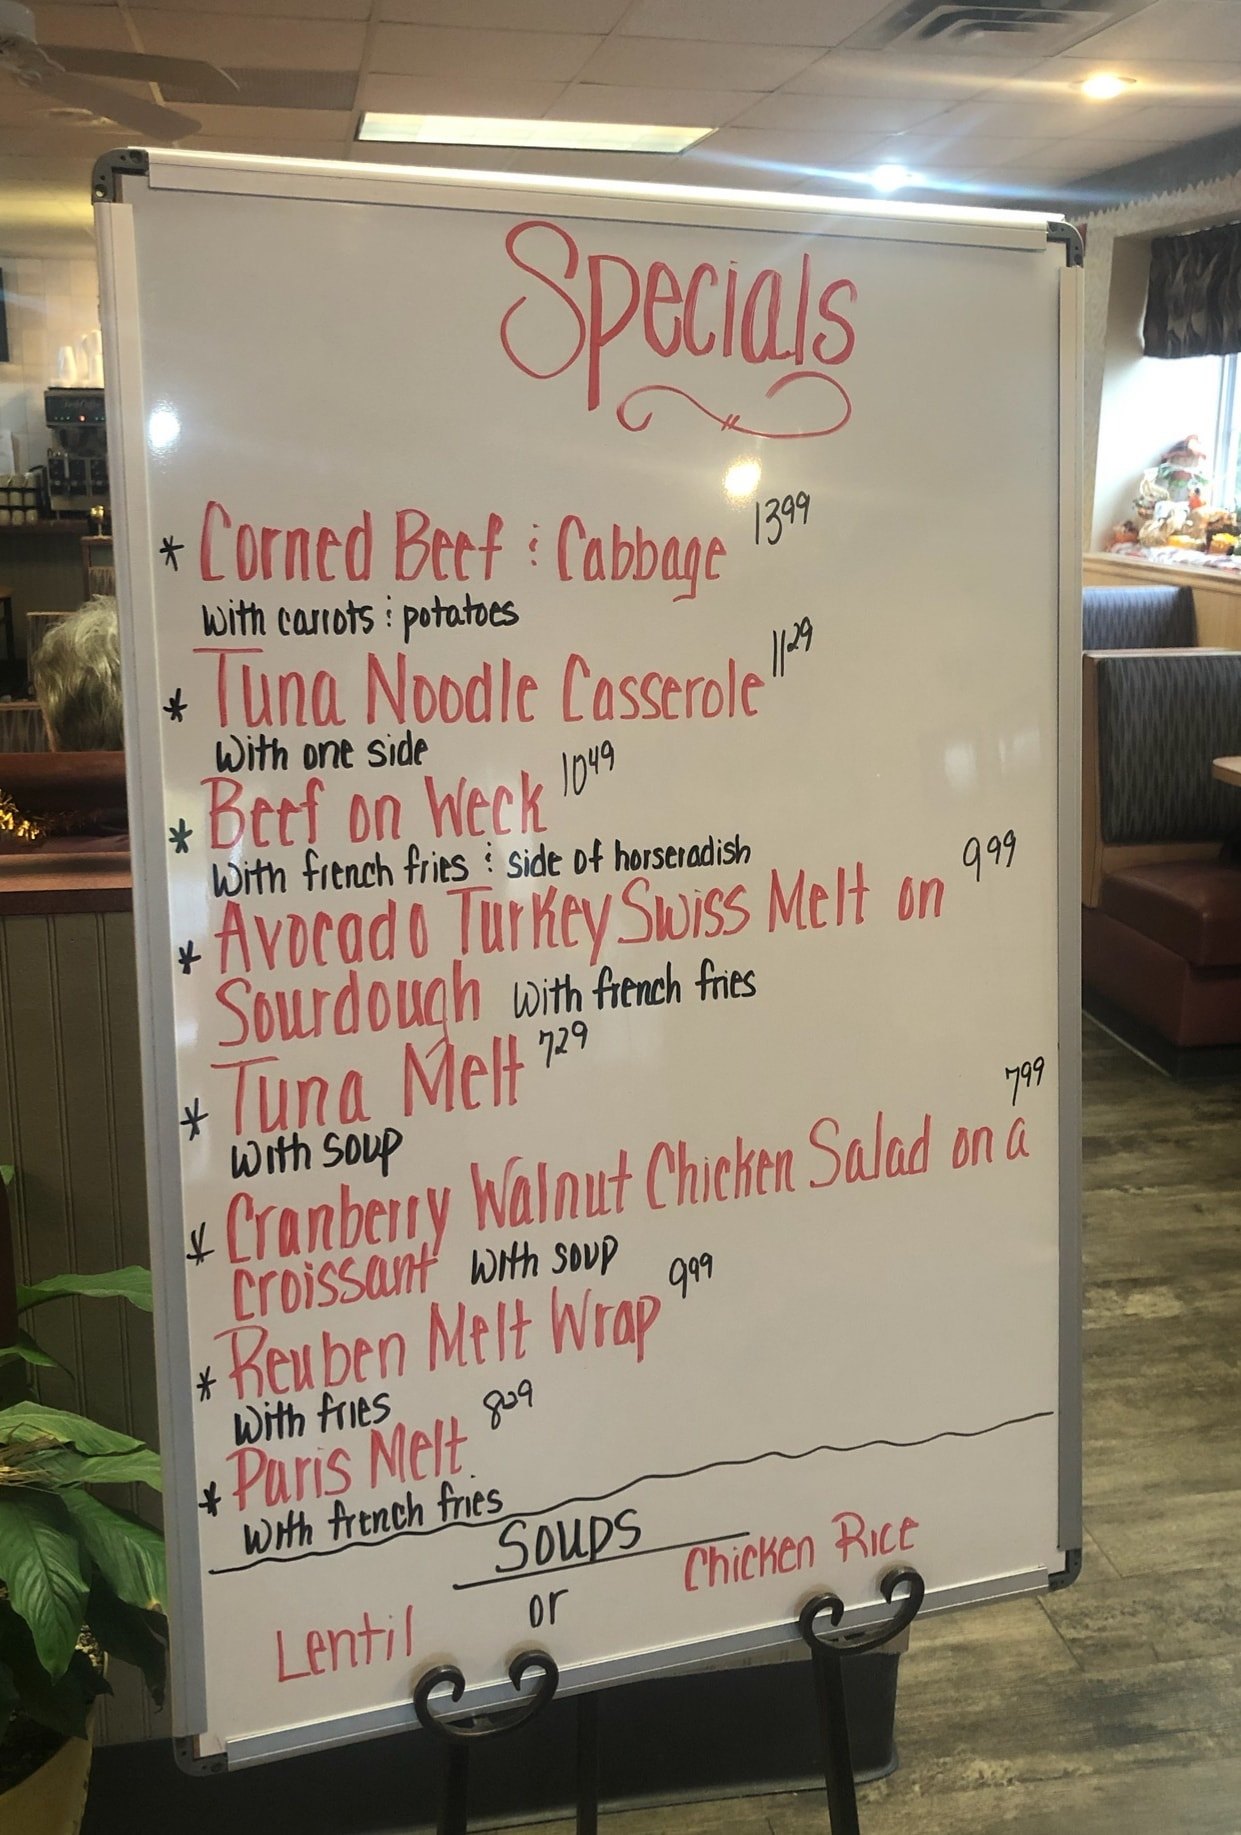 Specials
* Corned Beef & Cabbage 13.99
with carrots & potatoes
* Tuna Noodle Casserole 11.29
with one side
* Beef on Weck 10.49
with french fries & side of horseradish
* Avocado Turkey Swiss Melt on 9.99
Sourdough with french fries
* Tuna Melt 7.29
with soup
* Cranberry Walnut Chicken Salad on a 7.99
croissant with soup
* Reuben Melt Wrap 9.99
with fries
* Paris Melt
with french fries
Soups
Lentil or Chicken Rice